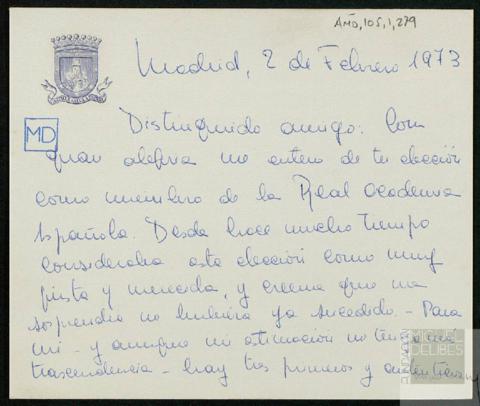 AMD, 105, 1, 279
Madrid, 2 de Febrero 1973
MD
Distinguido amigo: Con
gran alegria me entero de tu elección
como miembro de la Real Academia
Española. Desde hace mucho tiempo
consideraba esta elección como muy
justa y merecida, y creeme que me
sorprendia no hubiera ya sucedido. - Para
mi - y aunque mi estimación no tenga
trascendencia - hay tres primeros y
FUNDACIÓN
MIGUEL
DELIBES